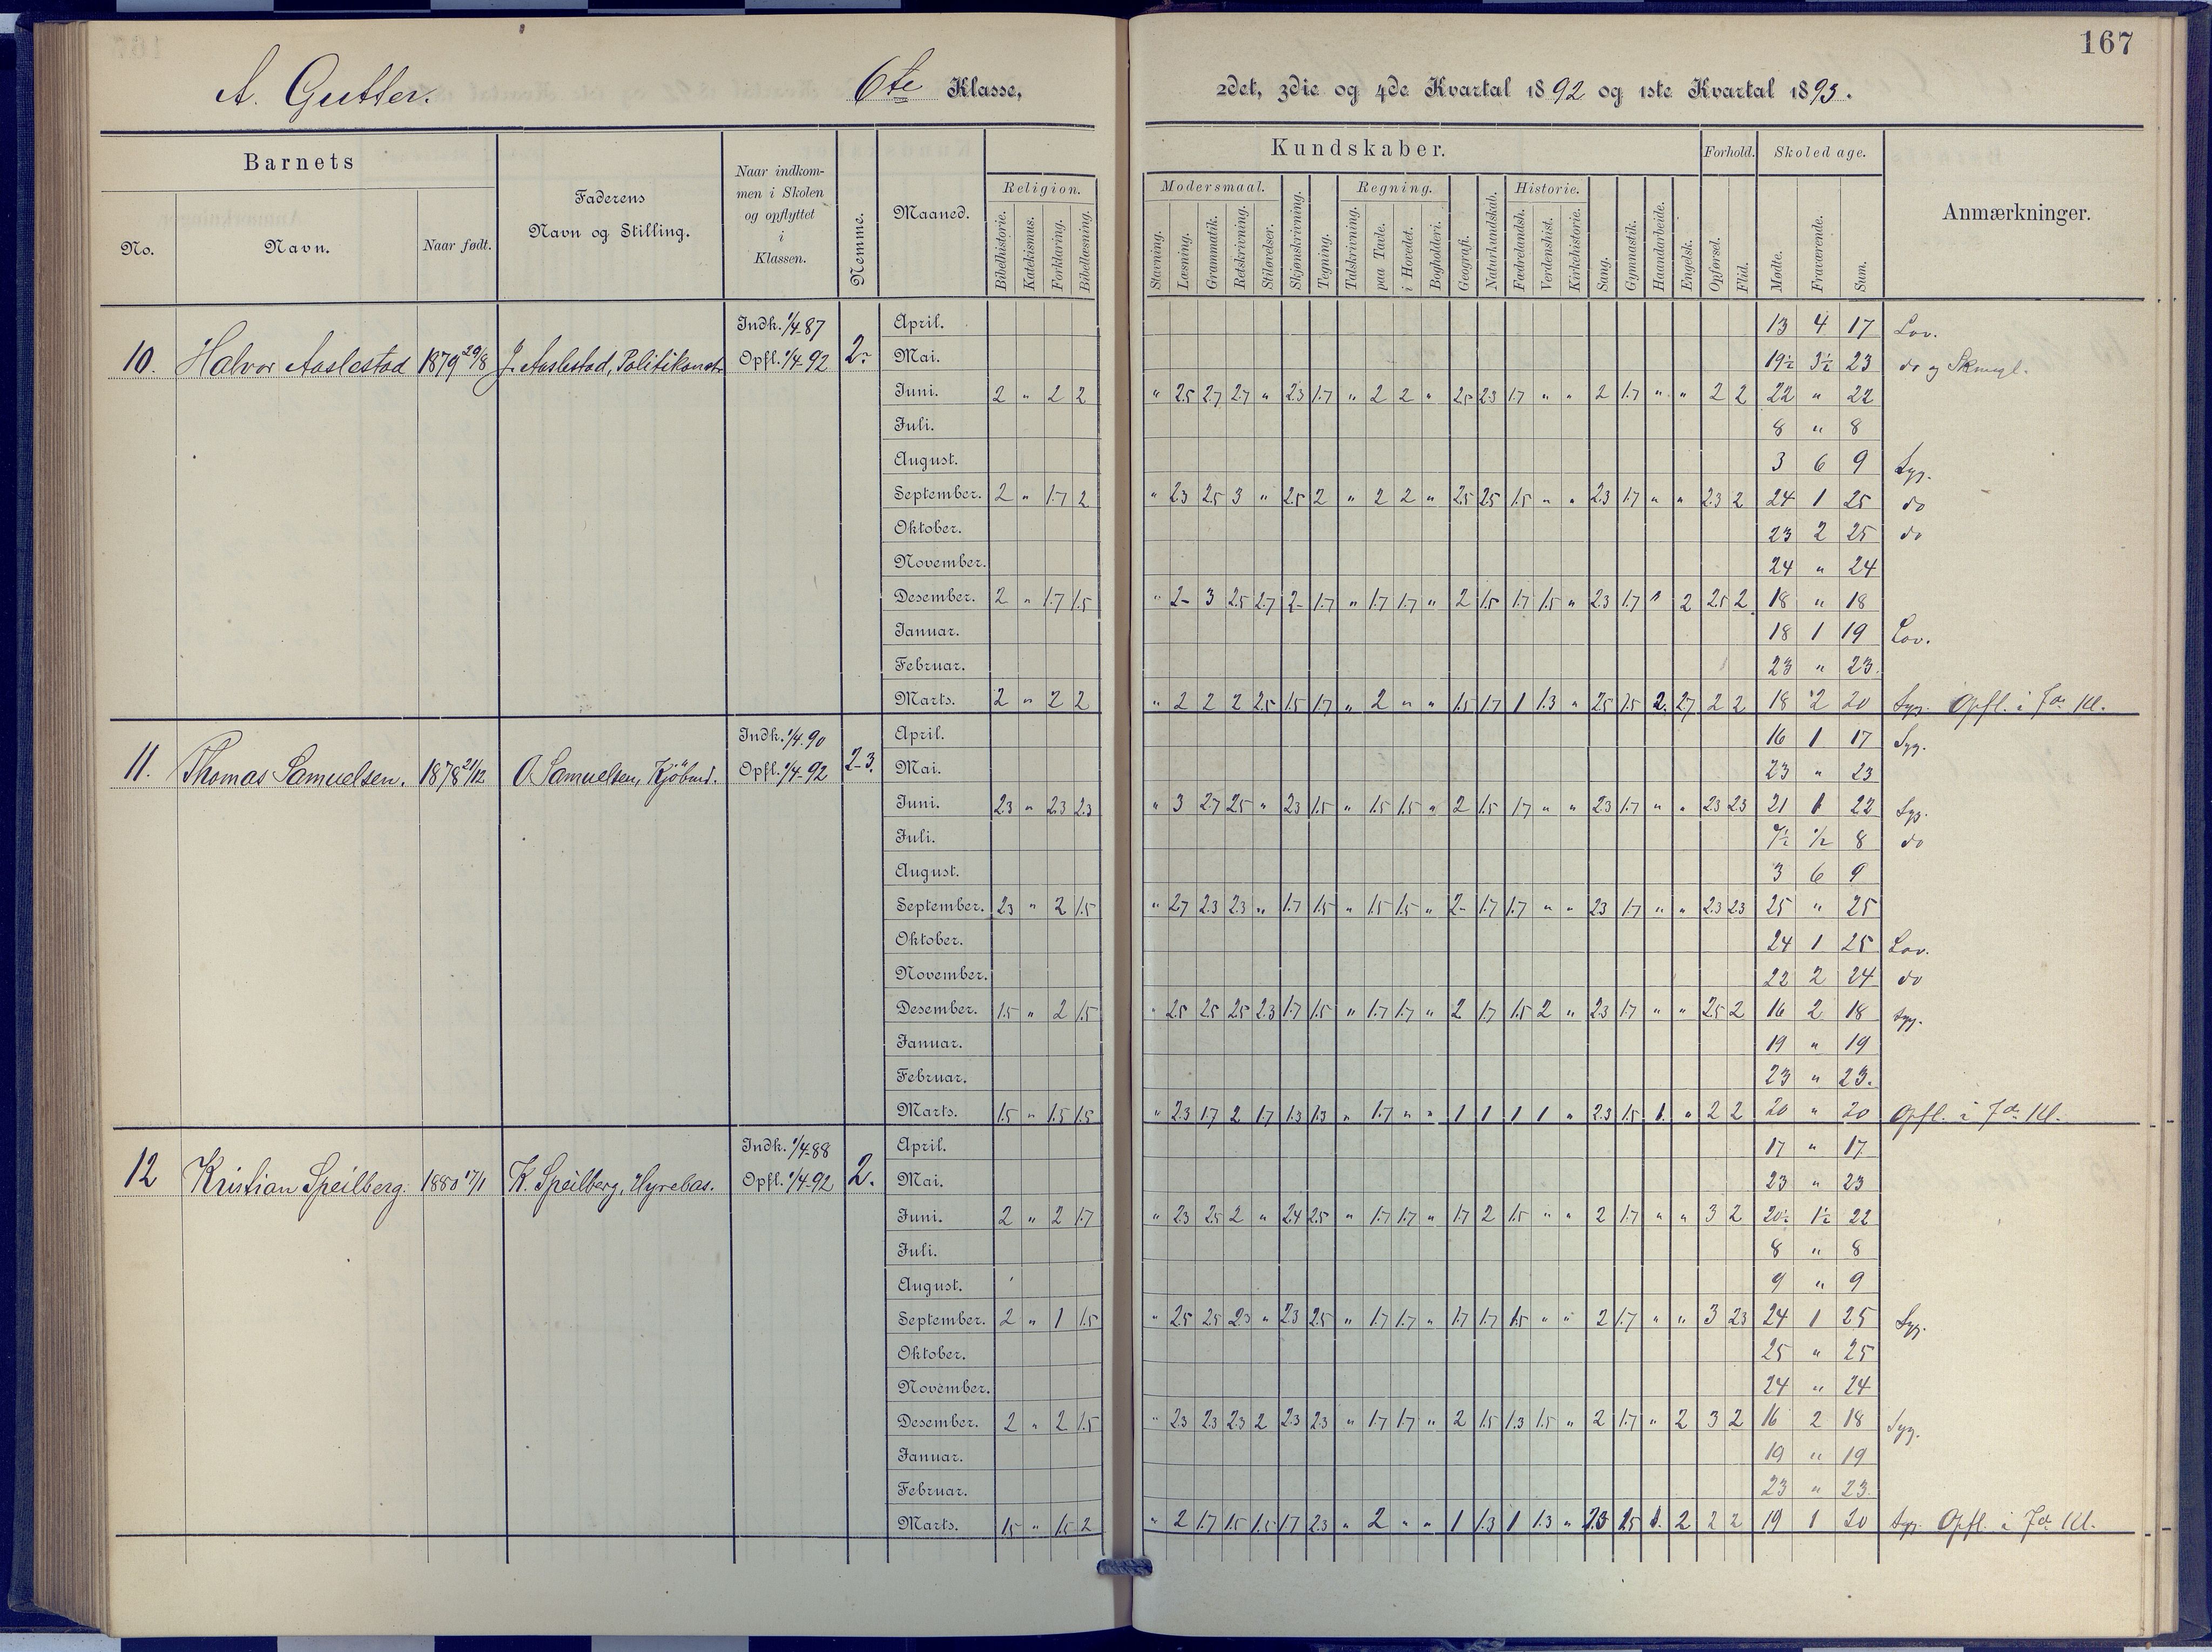 167
A. Gutter. 6te Klasse, 2det, 3die og 4de Kvartal 1892 og 1ste Kvartal 1893.
Barnets
No. Navn. Naar født.
Faderens Navn og Stilling.
Naar indkom-
men i Skolen
og opflyttet
i
Klassen.
Nemme.
Maaned.
Kundskaber.
Religion.
Bibelhistorie. Katekismus. Forklaring. Bibellæsning.
Modersmaal.
Stavning. Læsning. Grammatik. Retskrivning. Stiløvelser.
Skjønskrivning. Tegning.
Regning.
Talskrivning. paa Tavle. i Hovedet. Bogholderi.
Geografi. Naturkundskab.
Historie.
Fædrelandsh. Verdenshist. Kirkehistorie.
Sang. Gymnastik. Haandarbeide. Engelsk.
Forhold.
Opførsel. Flid.
Skoledage.
Mødte. Fraværende. Sum.
Anmærkninger.
10. Halvor Aaslestad 1879 29/8 J. Aaslestad, Politikonst. Indk. 1/4-87 Opfl. 1/4-92 2.
April. 13 4 17 Lov.
Mai. 19½ 3½ 23 do og Skmgl.
Juni. 2 " 2 2 " 2.5 2.7 2.7 " 2.3 1.7 " 2 2 " 2.5 2.3 1.7 " " 2 1.7 " " 2 2 22 " 22
Juli. 8 " 8
August. 3 6 9 Syg.
September. 2 " 1.7 2 " 2.3 2.5 3 " 2.5 2 " 2 2 " 2.5 2.5 1.5 " " 2.3 1.7 " " 2.3 2 24 1 25 do
Oktober. 23 2 25 do
November. 24 " 24
Desember. 2 " 1.7 1.5 " 2- 3 2.5 2.7 2- 1.7 " 1.7 1.7 " 2 1.5 1.7 1.5 " 2.3 1.7 " 2 2.5 2 18 " 18
Januar. 18 1 19 Lov.
Februar. 23 " 23.
Marts. 2 " 2 2 " 2 2 2 2.5 1.5 1.7 " 2 " " 1.5 1.7 1 1.3 " 2.5 1.5 2. 2.7 2 2 18 2 20 Syg. Opfl. i 7de Kl.
11. Thomas Samuelsen. 1878 21/12 O. Samuelsen, Kjøbmd. Indk. 1/4-90 Opfl. 1/4-92 2-3.
April. 16 1 17 Syg.
Mai. 23 " 23
Juni. 2.3 " 2.3 2.3 " 3 2.7 2.5 " 2.3 1.5 " 1.5 1.5 " 2 1.5 1.7 " " 2.3 1.7 " " 2.3 2.3 21 1 22 Syg.
Juli. 7½ ½ 8 do
August. 3 6 9
September. 2.3 " 2 1.5 " 2.7 2.3 2.3 " 1.7 1.5 " 1.5 1.5 " 2- 1.7 1.7 " " 2.3 1.7 " " 2.3 2.3 25 " 25
Oktober. 24 1 25 Lov.
November. 22 2 24 do
Desember. 1.5 " 2 1.5 " 2.5 2.5 2.5 2.3 1.7 1.5 " 1.7 1.7 " 2 1.7 1.5 2 " 2.3 1.7 " " 2.5 2 16 2 18 Syg.
Januar. 19 " 19
Februar. 23 " 23.
Marts. 1.5 " 1.5 1.5 " 2.3 1.7 2 1.7 1.3 1.3 " 1.7 " " 1 1 1 1 " 2.3 1.5 1. " 2 2 20 " 20 Opfl. i 7de Kl.
12 Kristian Speilberg. 1880 17/1 K. Speilberg, Hyrebas. Indk. 1/4-88 Opfl. 1/4-92 2.
April. 17 " 17
Mai. 23 " 23
Juni. 2 " 2 1.7 " 2.3 2.5 2 " 2.4 2.5 " 1.7 1.7 " 1.7 2 1.5 " " 2 1.7 " " 3 2 20½ 1½ 22
Juli. 8 " 8
August. 9 " 9
September. 2 " 1 1.5 " 2.5 2.5 2.3 " 2.3 2.5 " 1.7 1.7 " 1.7 1.7 1.5 " " 2 1.7 " " 3 2.3 24 1 25 Syg.
Oktober. 25 " 25
November. 24 " 24
Desember. 2 " 2 1.5 " 2.3 2.3 2.3 2 2.3 2.3 " 1.7 1.7 " 2 1.5 1.3 1.5 " 2 1.7 " 2 3 2 16 2 18 Syg.
Januar. 19 " 19
Februar. 23 " 23.
Marts. 1.5 " 1.5 2 " 2 1.7 1.5 1.5 1.7 2.3 " 2 " " 1 1.3 1 1.3 " 2.3 2.5 1. 2 2 2 19 1 20 Syg. Opfl. i 7de Kl.